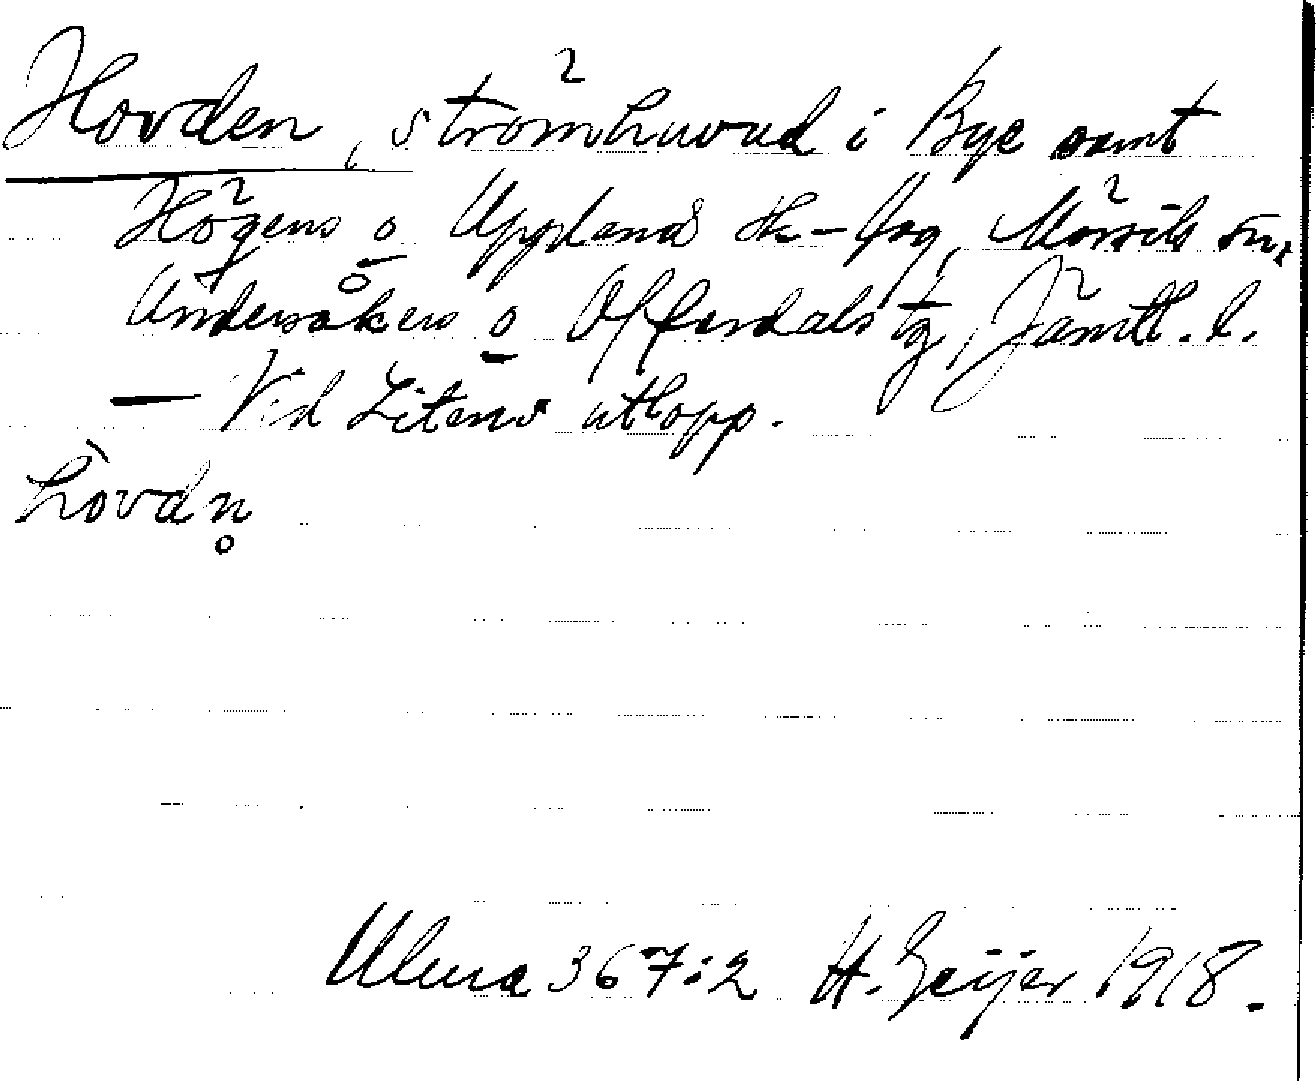 Hovden, strömhuvud i Bye samt
Högens o Upplands sk-lag, Mörsils sn,
Undersåkers o Offerdals tg, Jämtl. l.
— Vid Litens utlopp.
hòvdn̥
Uluca 367:2 H. Geijer 1918.